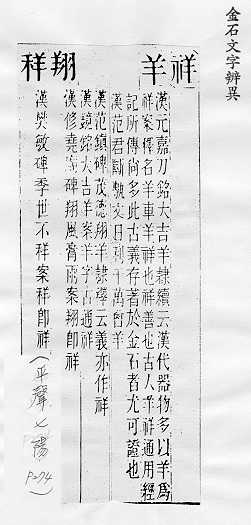 金石文字辨異
祥羊
漢元嘉刀銘大吉羊隸續云漢代器物多以羊為
祥案釋名羊車羊祥也祥善也古人羊祥通用經
記所傳尚多此古義存者於金石者尤可證也
漢范君闕
漢范鎮碑茂德翔羊隸釋云義亦作祥
漢鏡銘大吉羊案羊字古通祥
翔祥
漢修堯廟碑翔風膏雨案翔即祥
漢樊敏碑季世不祥案祥即祥
(平聲七陽
P.74)